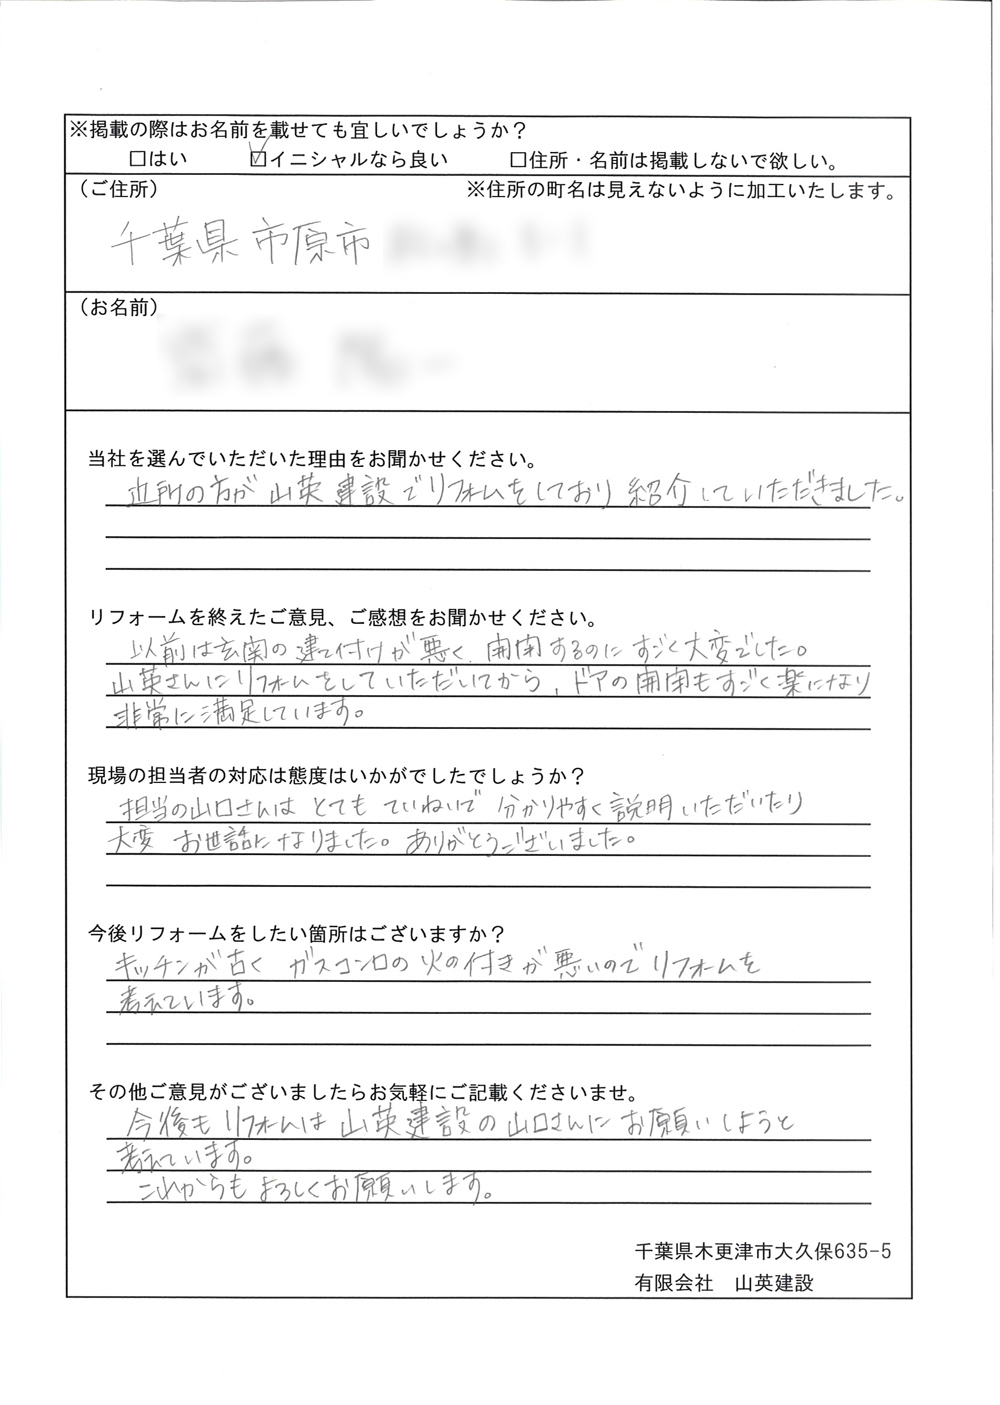 ※掲載の際はお名前を載せても宜しいでしょうか？
□はい ☑イニシャルなら良い □住所・名前は掲載しないで欲しい。
（ご住所） ※住所の町名は見えないように加工いたします。
千葉県市原市
（お名前）
当社を選んでいただいた理由をお聞かせください。
近所の方が山英建設でリフォームをしており紹介していただきました。
リフォームを終えたご意見、ご感想をお聞かせください。
以前は玄関の建て付けが悪く、開閉するのにすごく大変でした。
山英さんにリフォームをしていただいてから、ドアの開閉もすごく楽になり
非常に満足しています。
現場の担当者の対応は態度はいかがでしたでしょうか？
担当の山口さんはとてもていねいで分かりやすく説明いただいたり
大変お世話になりました。ありがとうございました。
今後リフォームをしたい箇所はございますか？
キッチンが古くガスコンロの火の付きが悪いのでリフォームを
考えています。
その他ご意見がございましたらお気軽にご記載くださいませ。
今後もリフォームは山英建設の山口さんにお願いしようと
考えています。
これからもよろしくお願いします。
千葉県木更津市大久保635-5
有限会社 山英建設